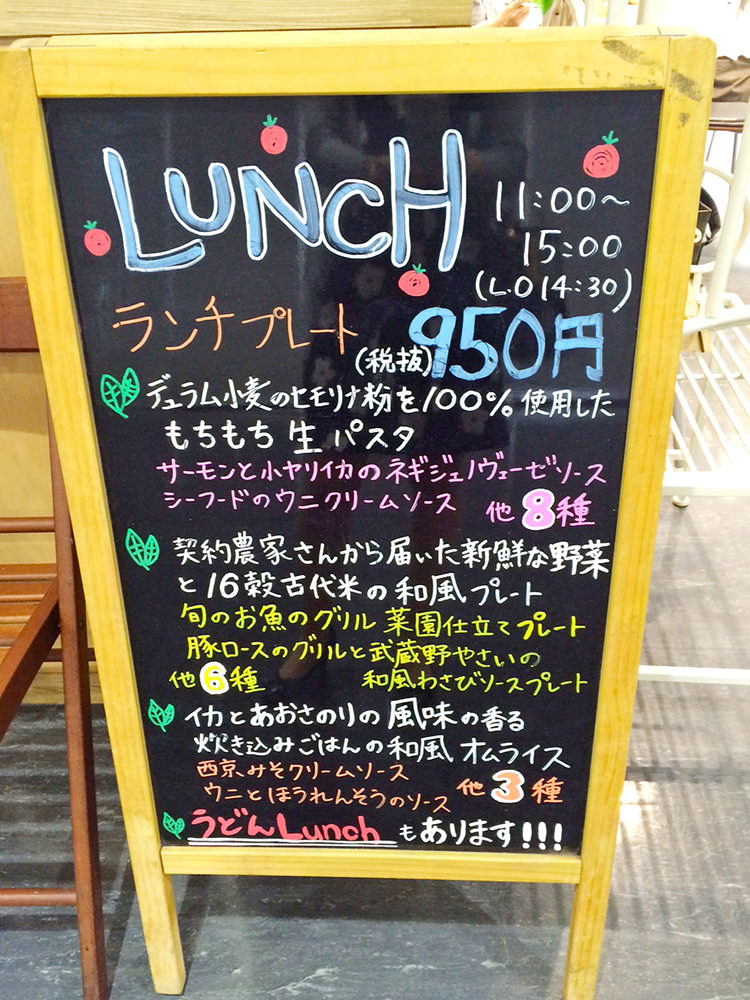 LUNCH
11:00〜
15:00
(L.O 14:30)
ランチプレート (税抜) 950円
デュラム小麦のセモリナ粉を100%使用した
もちもち生パスタ
サーモンと小ヤリイカのネギジェノヴェーゼソース
シーフードのウニクリームソース 他8種
契約農家さんから届いた新鮮な野菜
と16穀古代米の和風プレート
旬のお魚のグリル 菜園仕立てプレート
豚ロースのグリルと武蔵野やさいの
他6種 和風わさびソースプレート
イカとあおさのりの風味の香る
炊き込みごはんの和風オムライス
西京みそクリームソース
ウニとほうれんそうのソース 他3種
うどんLunchもあります!!!